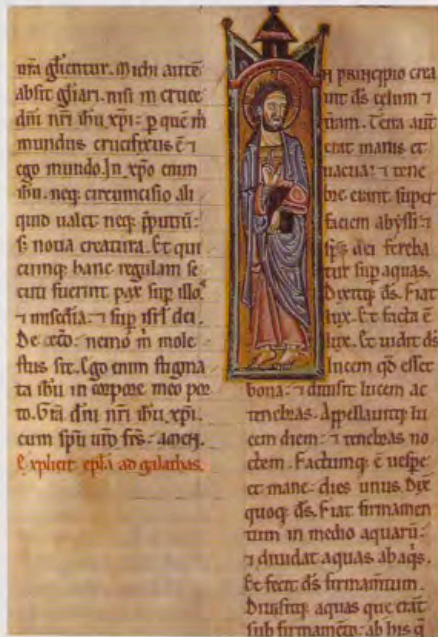 ura gl̄ientur. Michi aute᷑
absit gl̄iari. nisi in cruce
dn̄i nr̄i ih̄u xp̄i: p que᷑ m̄
mundus crucifixus ē ⁊
ego mundo. In xp̄o enim
ih̄u. neq; circumcisio ali
quid ualet neq; p̄putiū:
s; noua creatura. Et qui
cumq; hanc regulam se
cuti fuerint pax sup̄ illos
⁊ mis̄edia: ⁊ sup̄ isrl̄ dei.
De cet̄o: nemo m̄ mole
stus sit. Ego enim stigma
ta ih̄u in corpore meo por
to. Gr̄a dn̄i nr̄i ih̄u xp̄i.
cum sp̄u ur̄o frs̄: amen.
Explicit epl̄a ad galathas.
N principio crea
uit ds̄ celum ⁊
t̄ram. Terra aut̄
erat inanis et
uacua: ⁊ tene
bre erant super
faciem abyssi: ⁊
sp̄s dei fereba
tur sup̄ aquas.
Dixitq; ds̄. Fiat
lux. Et facta ē
lux. Et uidit ds̄
lucem qd̄ esset
bona: ⁊ diuisit lucem ac
tenebras. Appellauitq; lu
cem diem: ⁊ tenebras no
ctem. Factumq; ē uesp̄e
et mane: dies unus. Dix̄
quoq; ds̄. Fiat firmamen
tum in medio aquarū:
⁊ diuidat aquas ab aq̄s.
Et fecit ds̄ firmam̄tum.
Diuisitq; aquas que erāt
sub firmam̄to: ab his q̄